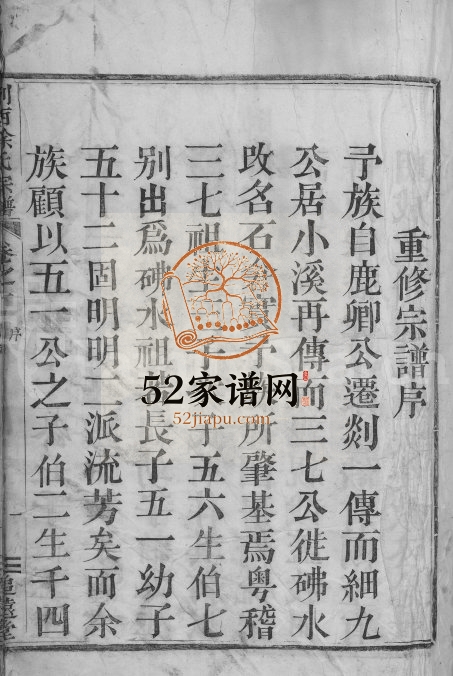 重修宗譜序
予族自鹿卿公遷剡一傳而細九
公居小溪再傳而三七公徙砩水
改名石 所肇基焉粵稽
三七祖生 五六生伯七
别出爲砩水祖 長子五一幼子
五十二固明明二派流芳矣而余
族顧以五一公之子伯二生千四
余氏宗譜
卷之一
序
一
52家谱网
52jiapu.com